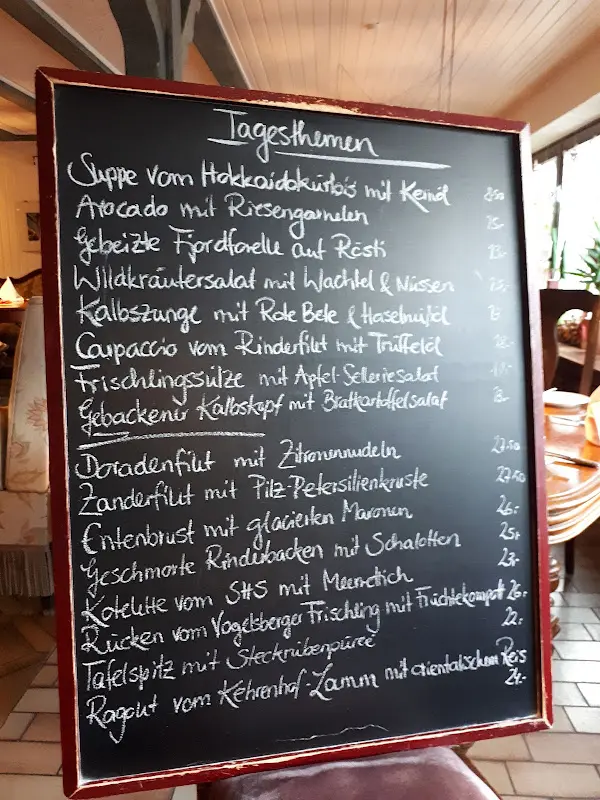 Tagesthemen
Suppe vom Hokkaidokürbis mit Kernöl 8.50
Avocado mit Riesengarnelen 15.-
Gebeizte Fjordforelle auf Rösti 13.-
Wildkräutersalat mit Wachtel & Nüssen
Kalbszunge mit Rote Bete & Haselnußöl
Carpaccio vom Rinderfilet mit Trüffelöl
Frischlingssülze mit Apfel-Selleriesalat
Gebackener Kalbskopf mit Bratkartoffelsalat
Doradenfilet mit Zitronennudeln 27.50
Zanderfilet mit Pilz-Petersilienkruste 27.50
Entenbrust mit glacierten Maronen 26.-
Geschmorte Rinderbacken mit Schalotten 25.-
Kotelette vom SHS mit Meerrettich 23.-
Rücken vom Vogelsberger Frischling mit Früchtekompott 26.-
Tafelspitz mit Steckrübenpüree 22.-
Ragout vom Kehrenhof-Lamm mit orientalischem Reis 24.-